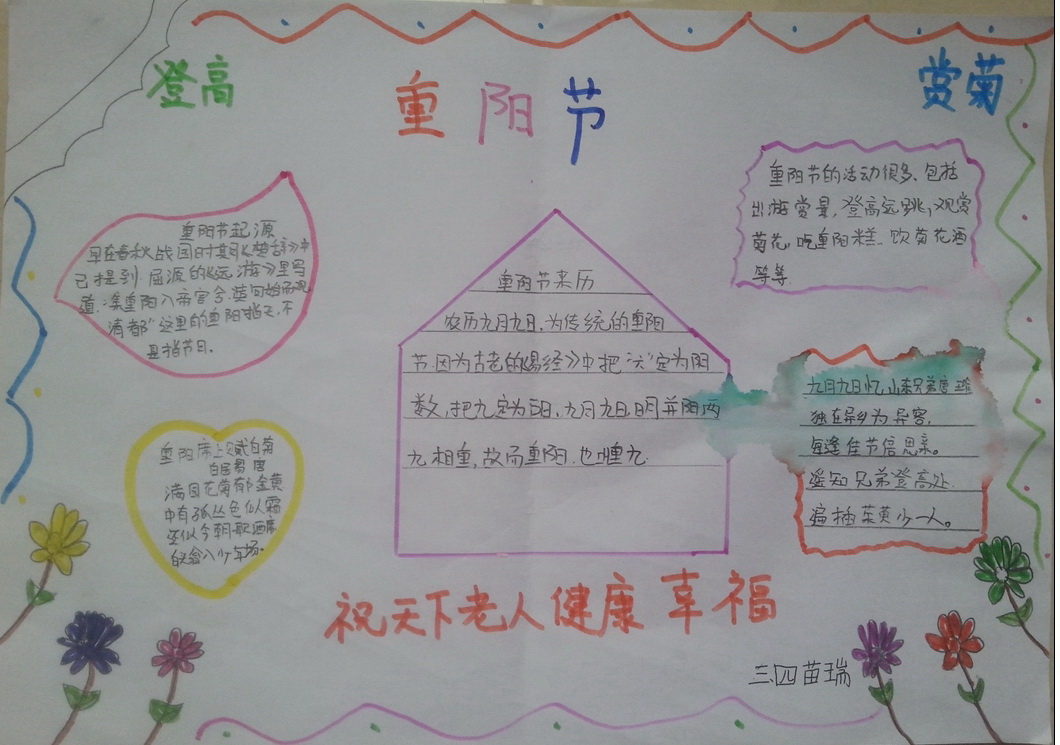 登高
重阳节
赏菊
重阳节起源
早在春秋战国时期《楚辞》中
已提到.屈原的《远游》里写
道:集重阳入帝宫兮,造旬始而观
清都"这里的重阳指天,不
是指节日。
重阳节来历
农历九月九日,为传统的重阳
节.因为古老的《易经》中把"六"定为阴
数,把九定为 ,九月九日,日月并阳两
九相重,故而重阳.也 重九.
重阳节的活动很多、包括
出游赏景,登高远跳,观赏
菊花,吃重阳糕、饮菊花酒
等等.
九月九日忆山东兄弟唐王维
独在异乡为异客,
每逢佳节信思亲。
遥知兄弟登高处
遍插茱萸少一人。
重阳席上赋白菊
白居易 唐
满园花菊郁金黄
中有孤丛色似霜
似今朝歌酒席
白 翁入少年场。
祝天下老人健康幸福
三.四苗瑞